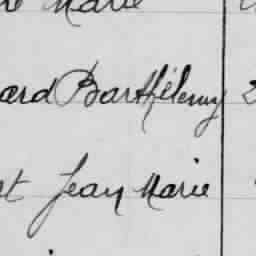 Marie
ard Barthélemy 2
et Jean Marie